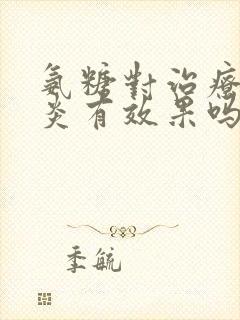 氨糖對治療
炎有效果吗
季毓